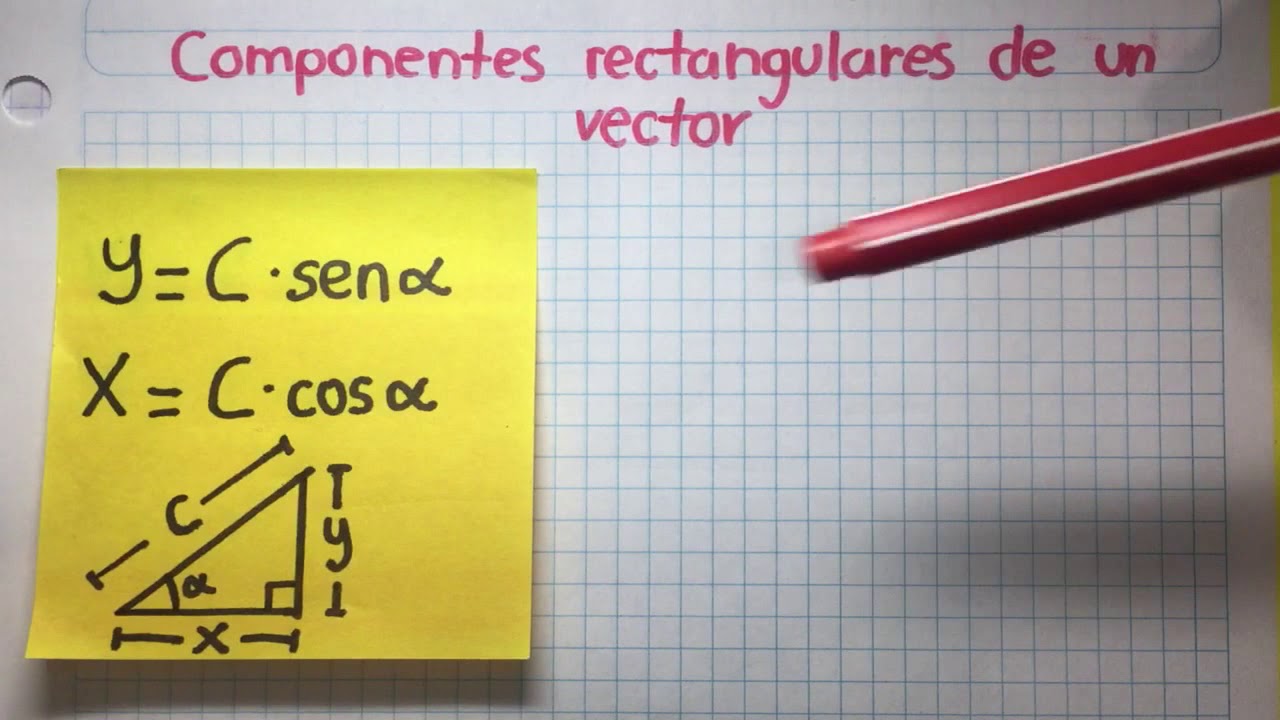 Componentes rectangulares de un
vector
y = C · sen α
X = C · cos α
C
y
α
x